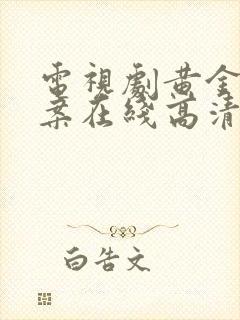 電視劇黃金
案在綫高清
白告文